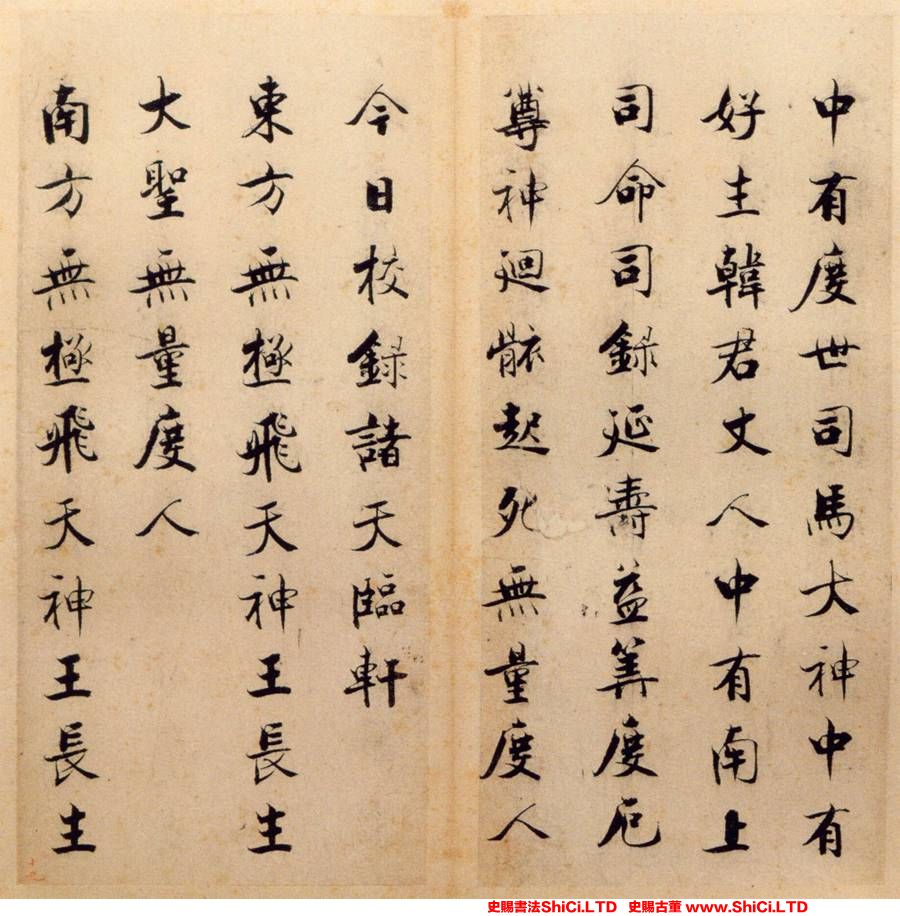 中有度世司馬大神中有
好生韓君丈人中有南上
司命司錄延壽益筭度厄
尊神迴骸起死無量度人
今日校錄諸天臨軒
東方無極飛天神王長生
大聖無量度人
南方無極飛天神王長生
史賜書法ShiCi.LTD 史賜古董 www.ShiCi.LTD